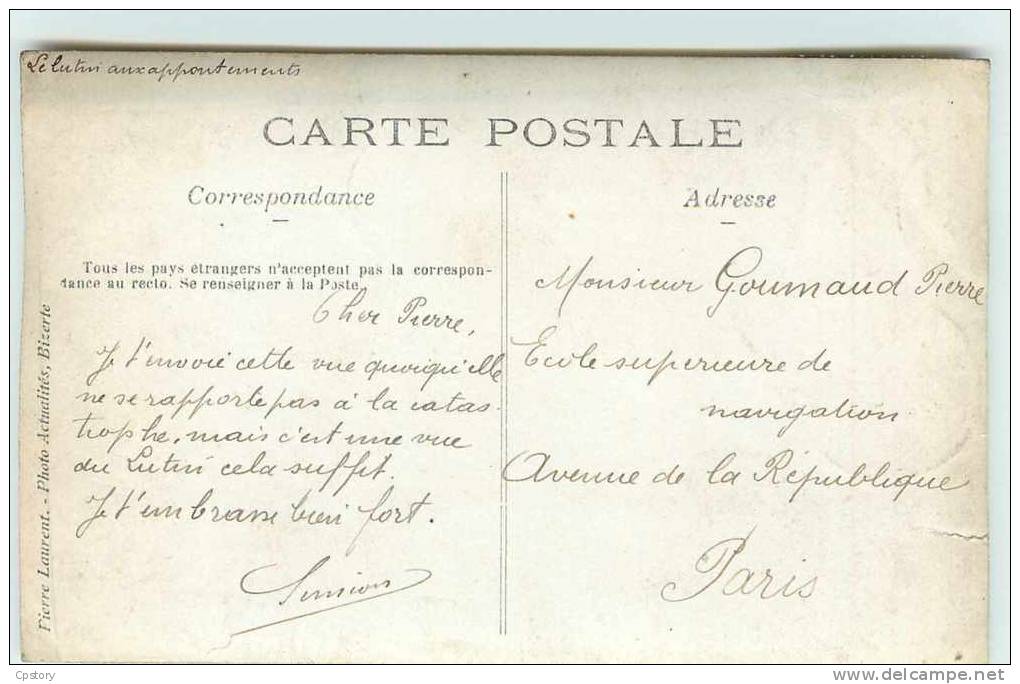 Le Lutin aux appontements
CARTE POSTALE
Correspondance
Tous les pays étrangers n'acceptent pas la correspon-
dance au recto. Se renseigner à la Poste.
Cher Pierre,
Je t'envoie cette vue quoiqu'elle
ne se rapporte pas à la catas-
trophe, mais c'est une vue
du Lutin cela suffit.
Je t'embrasse bien fort.
Adresse
Monsieur Goumaud Pierre
Ecole superieure de
navigation
Avenue de la République
Paris
Pierre Laurent. - Photo-Actualités, Bizerte
Cpstory
www.delcampe.net